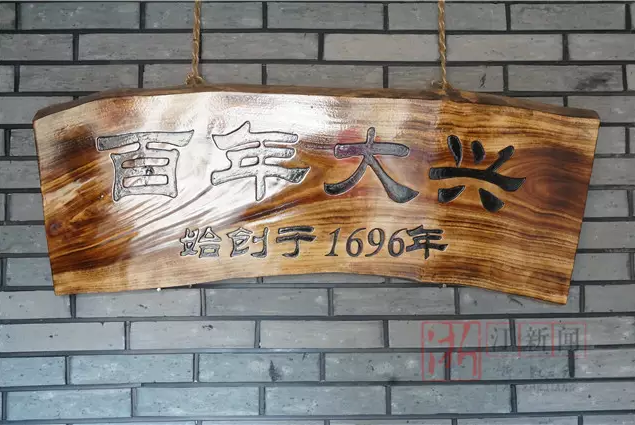 百年大兴
始创于1696年
浙江新闻